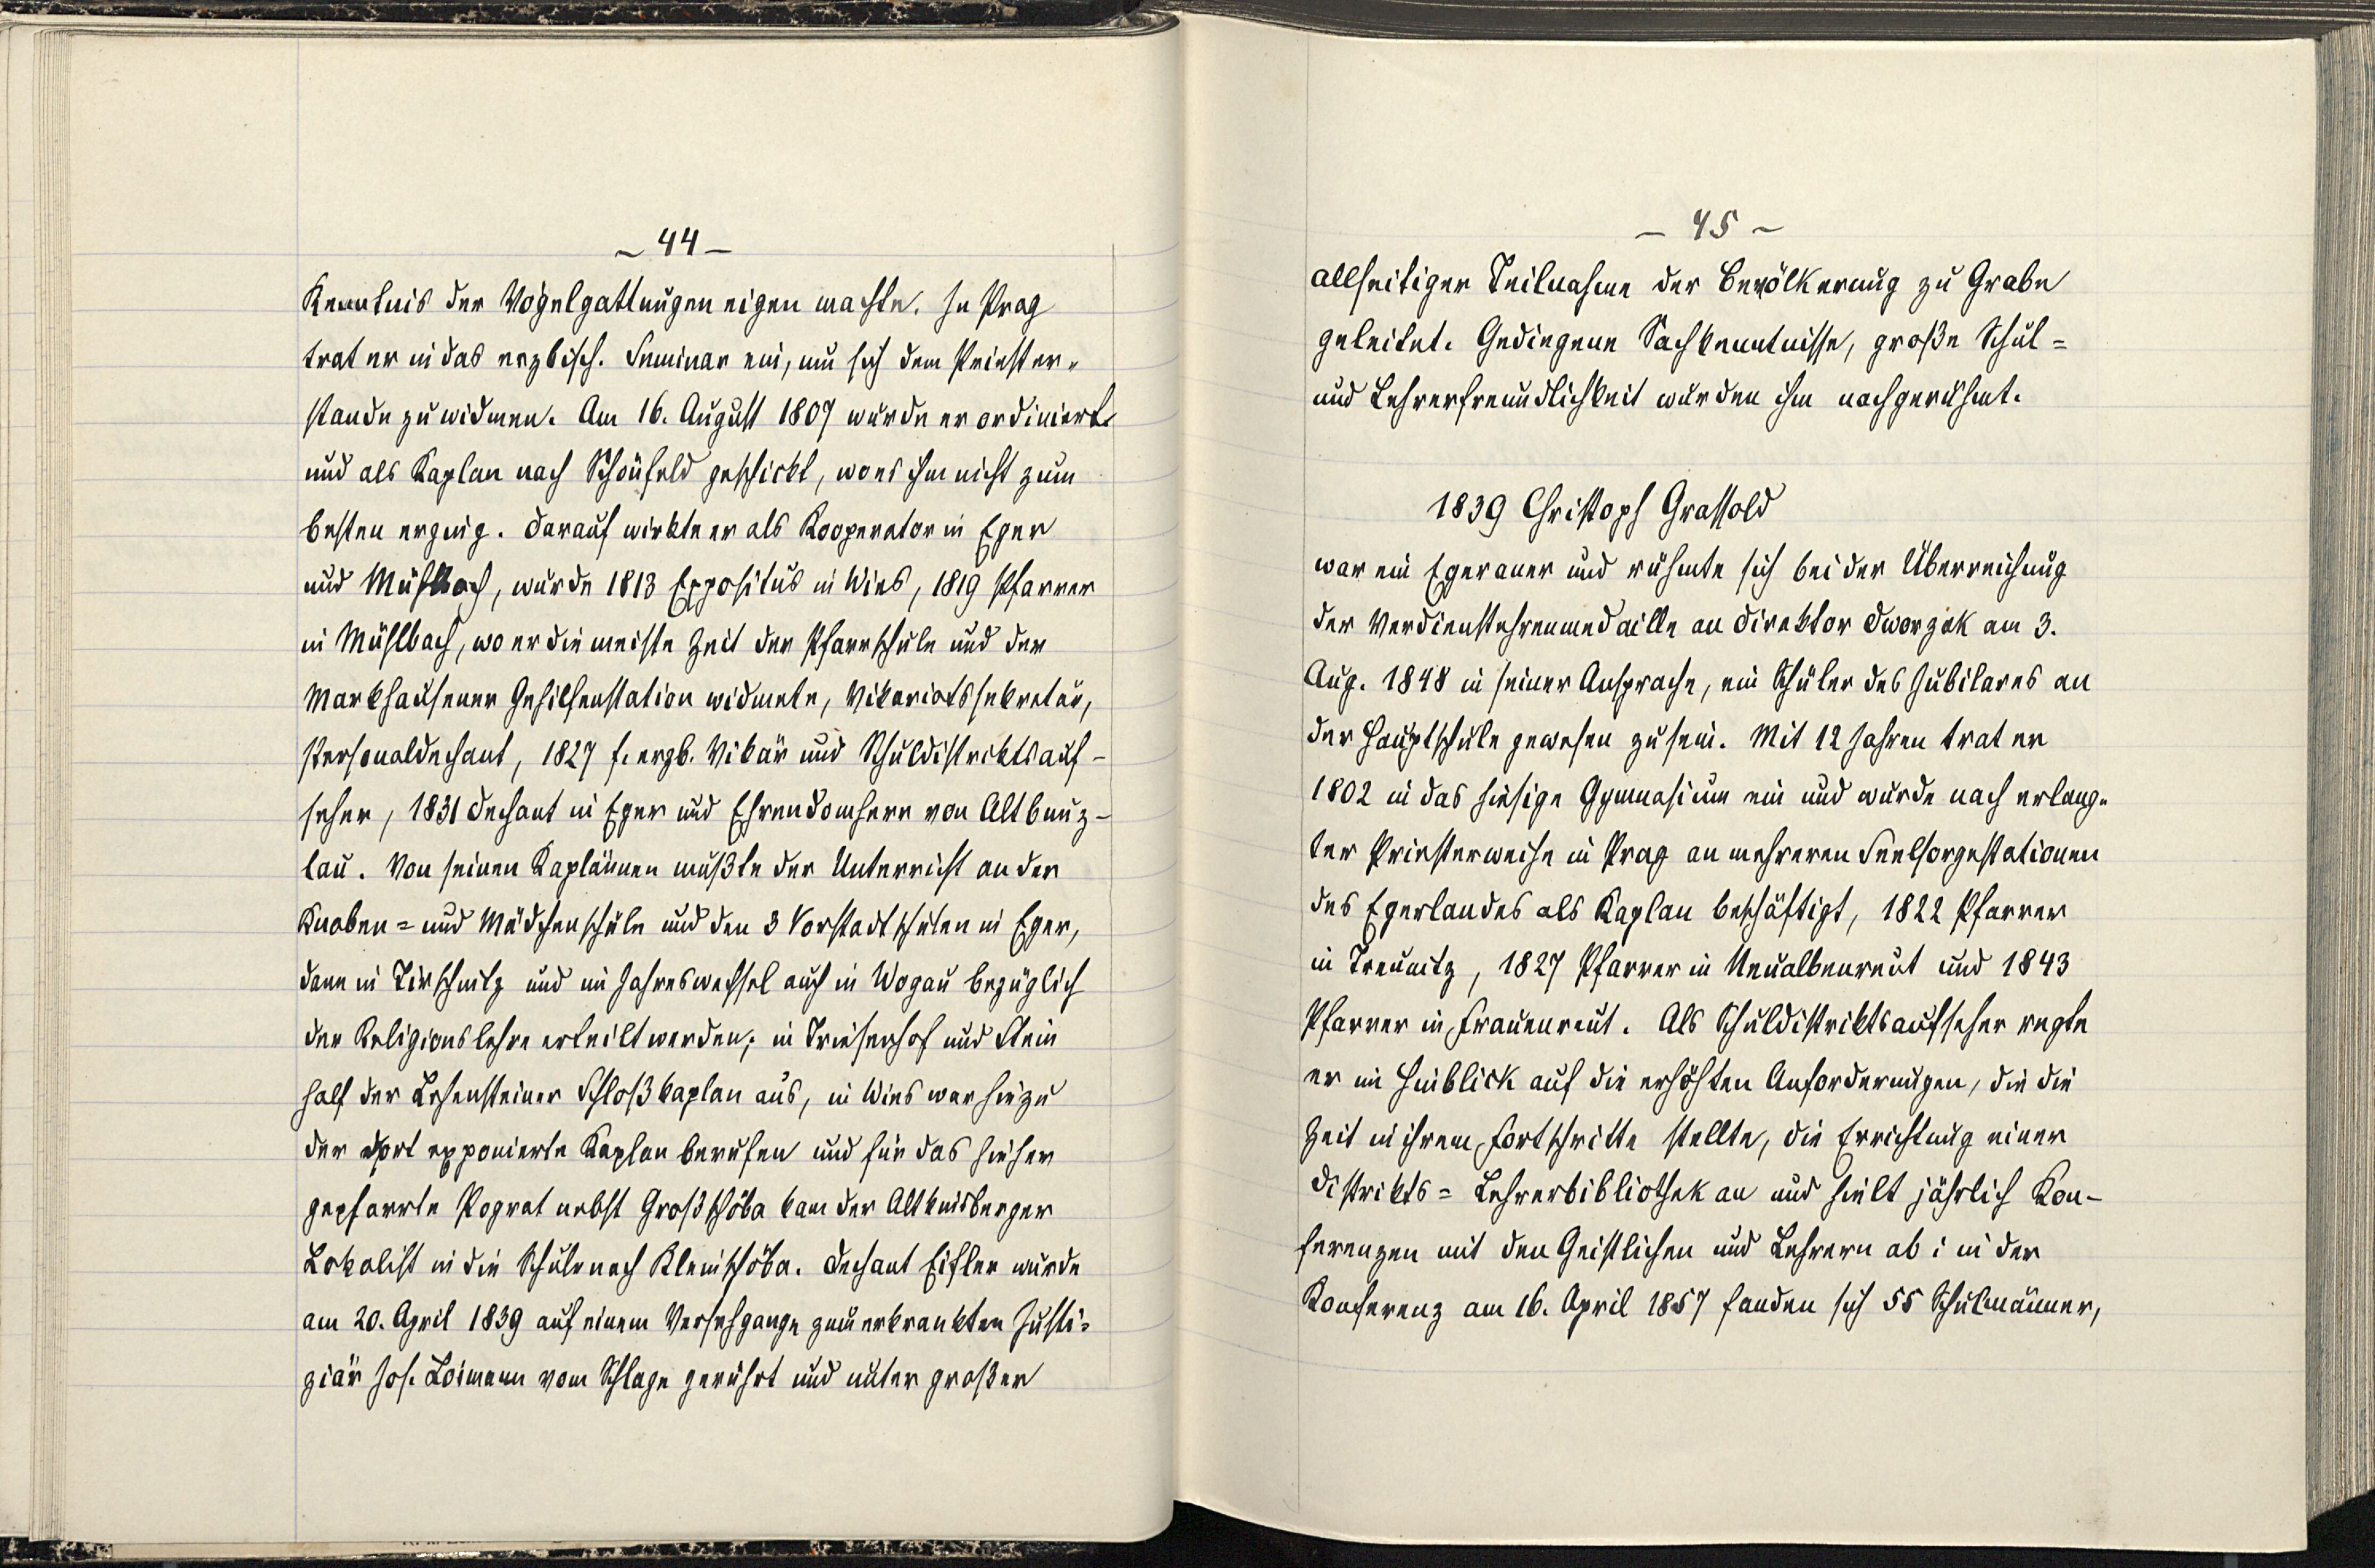 – 44 –
Kenntnis der Vogelgattungen eigen machte. In Prag
trat er in das erzbisch. Seminar ein, um sich dem Priester-
stande zu widmen. Am 16. August 1807 wurde er ordiniert
und als Kaplan nach Schönfeld geschickt, wo es ihm nicht zum
besten erging. Darauf wirkte er als Kooperator in Eger
und Mühlbach, wurde 1813 Expositus in Wies, 1819 Pfarrer
in Mühlbach, wo er die meiste Zeit der Pfarrschule und der
Markhausener Gehilfenstation widmete, Vikariatssekretär,
Personaldechant, 1827 f. erzb. Vikär und Schuldistriktsauf-
seher, 1831 Dechant in Eger und Ehrendomherr von Altbunz-
lau. Von seinen Kaplänen mußte der Unterricht an der
Knaben= und Mädchenschule und den 3 Vorstadtschulen in Eger,
dann in Tirschnitz und im Jahreswechsel auch in Wogau bezüglich
der Religionslehre erteilt werden; in Triesenhof und Stein
half der Lehensteiner Schloßkaplan aus, in Wies war hiezu
der dort exponierte Kaplan berufen und für das hieher
gepfarrte Pograt nebst Großschöba kam der Altkinsberger
Lokalist in die Schule nach Kleinschöba. Dechant Eisler wurde
am 20. April 1839 auf einem Versehgange zum erkrankten Justi-
ziär Jos. Loimann vom Schlage gerührt und unter großer
– 45 –
allseitiger Teilnahme der Bevölkerung zu Grabe
geleitet. Gediegene Sachkenntnisse, große Schul=
und Lehrerfreundlichkeit wurden ihm nachgerühmt.
1839 Christoph Grassold
war ein Egeraner und rühmte sich bei der Überreichung
der Verdienstehrenmedaille an Direktor Dworzak am 3.
Aug. 1848 in seiner Ansprache, ein Schüler des Jubilares an
der Hauptschule gewesen zu sein. Mit 12 Jahren trat er
1802 in das hiesige Gymnasium ein und wurde nach erlang-
ter Priesterweihe in Prag an mehreren Seelsorgestationen
des Egerlandes als Kaplan beschäftigt, 1822 Pfarrer
in Treunitz, 1827 Pfarrer in Neualbenreut und 1843
Pfarrer in Frauenreut. Als Schuldistriktsaufseher regte
er im Hinblick auf die erhöhten Anforderungen, die die
Zeit in ihrem Fortschritte stellte, die Errichtung einer
Distrikts= Lehrerbibliothek an und hielt jährlich Kon-
ferenzen mit den Geistlichen und Lehrern ab; in der
Konferenz am 16. April 1857 fanden sich 55 Schulmänner,